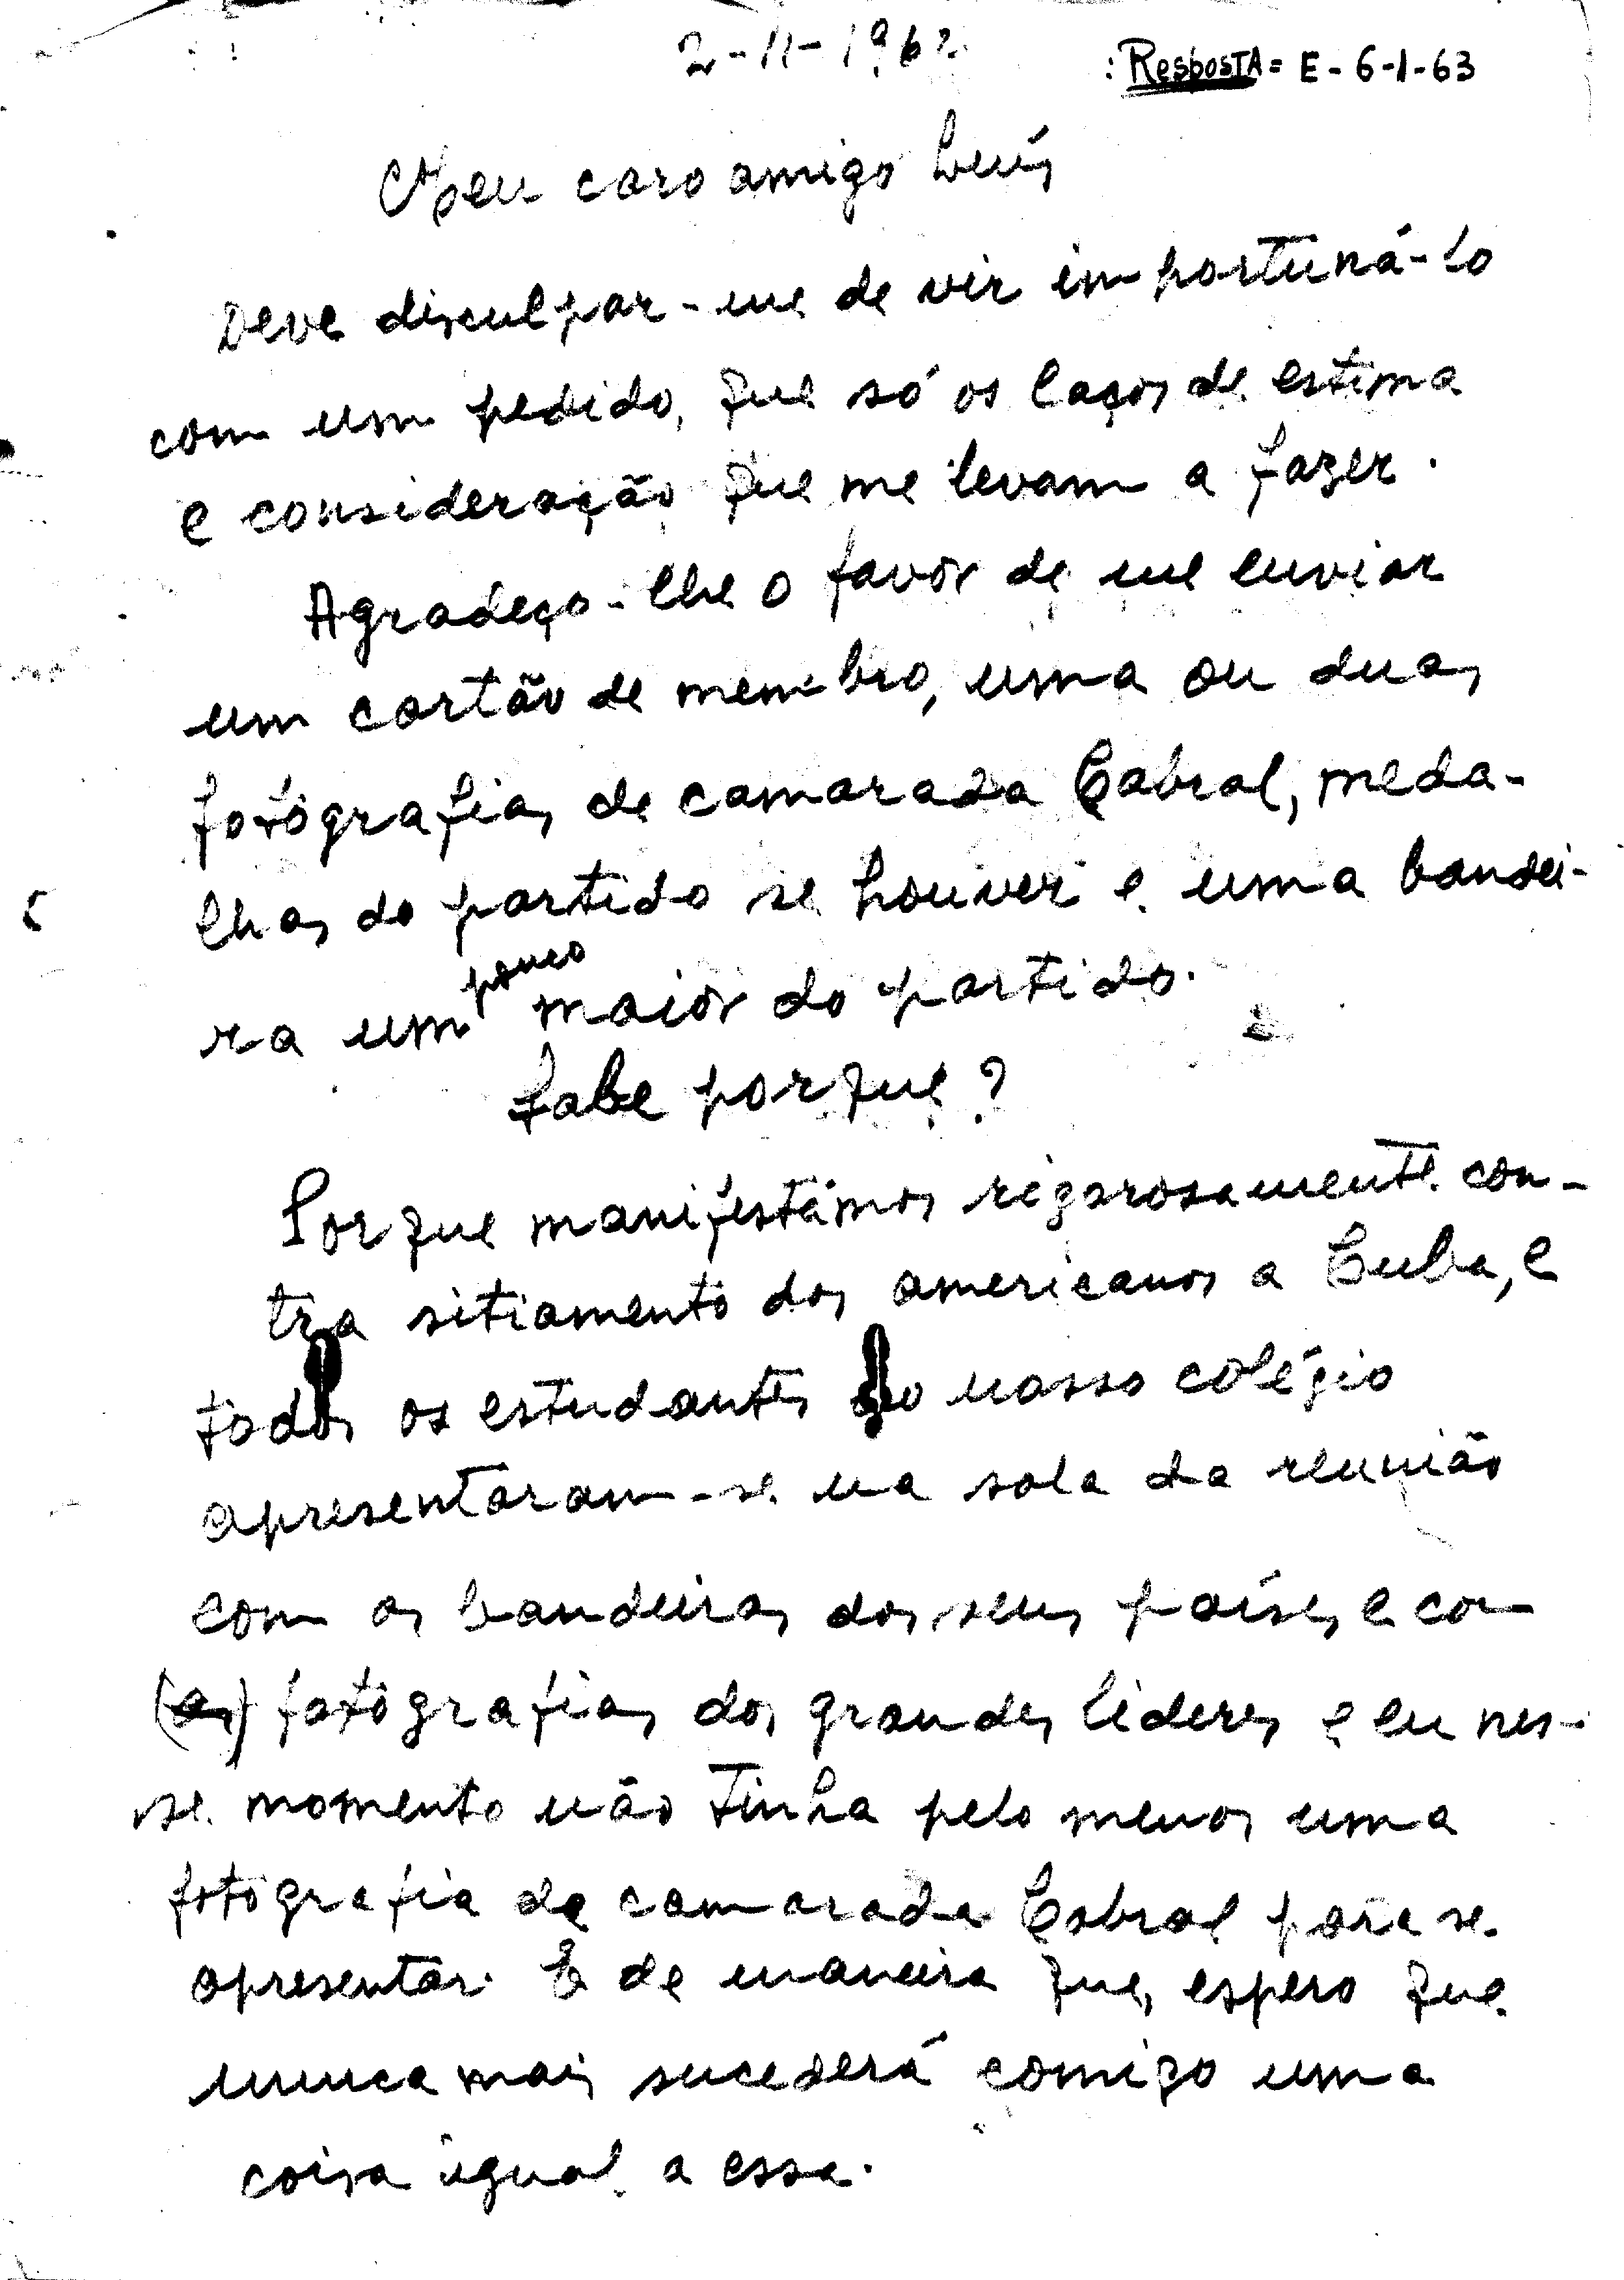 2-11-1962
: Resposta = E - 6-1-63
Meu caro amigo Luís
Deve disculpar-me de vir importuná-lo
com um pedido, que só os laços de estima
e consideração que me levam a fazer.
Agradeço-lhe o favor de me enviar
um cartão de membro, uma ou duas
fotografias de camarada Cabral, meda-
lhas do partido se houver e uma bandei-
ra um pouco maior do partido.
Sabe porque?
Porque manifestámos rigorosamente con-
tra sitiamento dos americanos a Cuba, e
todos os estudantes do nosso colégio
apresentaram-se na sala da reunião
com as bandeiras dos seus países e com
(as) fotografias dos grandes líderes e eu nes-
se momento não tinha pelo menos uma
fotografia de camarada Cabral para se
apresentar. E de maneira que, espero que
nunca mais sucederá comigo uma
coisa igual a essa.